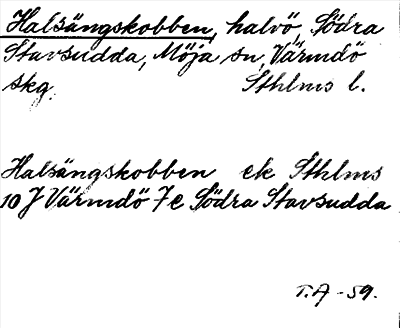 Halsängskobben, halvö, Södra
Stavsudda, Möja sn, Värmdö
skg. Sthlms l.
Halsängskobben ek Sthlms
10 J Värmdö 7 e Södra Stavsudda
T.A -59.